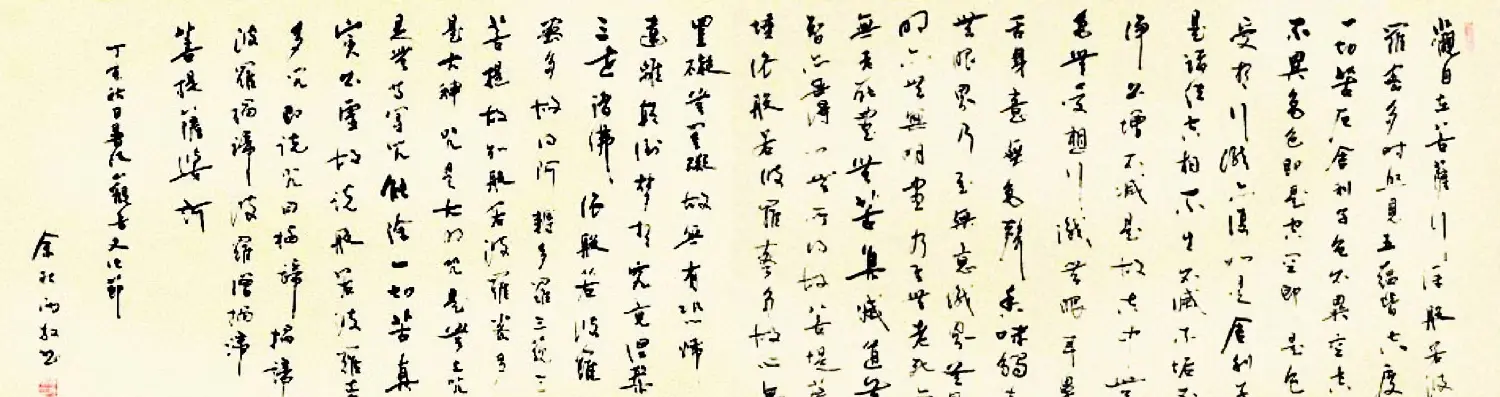 觀自在菩薩行深般若波
羅蜜多時照見五蘊皆空度
一切苦厄舍利子色不異空空
不異色色即是空空即是色
受想行識亦復如是舍利子
是諸法空相不生不滅不垢不
淨不增不減是故空中無
色無受想行識無眼耳鼻
舌身意無色聲香味觸
無眼界乃至無意識界無
明亦無無明盡乃至無老死亦
無老死盡無苦集滅道無
智亦無得以無所得故菩提薩
埵依般若波羅蜜多故心無
罣礙無罣礙故無有恐怖
遠離顛倒夢想究竟涅槃
三世諸佛依般若波羅
蜜多故得阿耨多羅三藐三
菩提故知般若波羅蜜多
是大神咒是大明咒是無上咒
是無等等咒能除一切苦真
實不虛故說般若波羅蜜
多咒即說咒曰揭諦揭諦
波羅揭諦波羅僧揭諦
菩提薩婆訶
丁亥秋日書於觀音文化節
余秋雨敬書